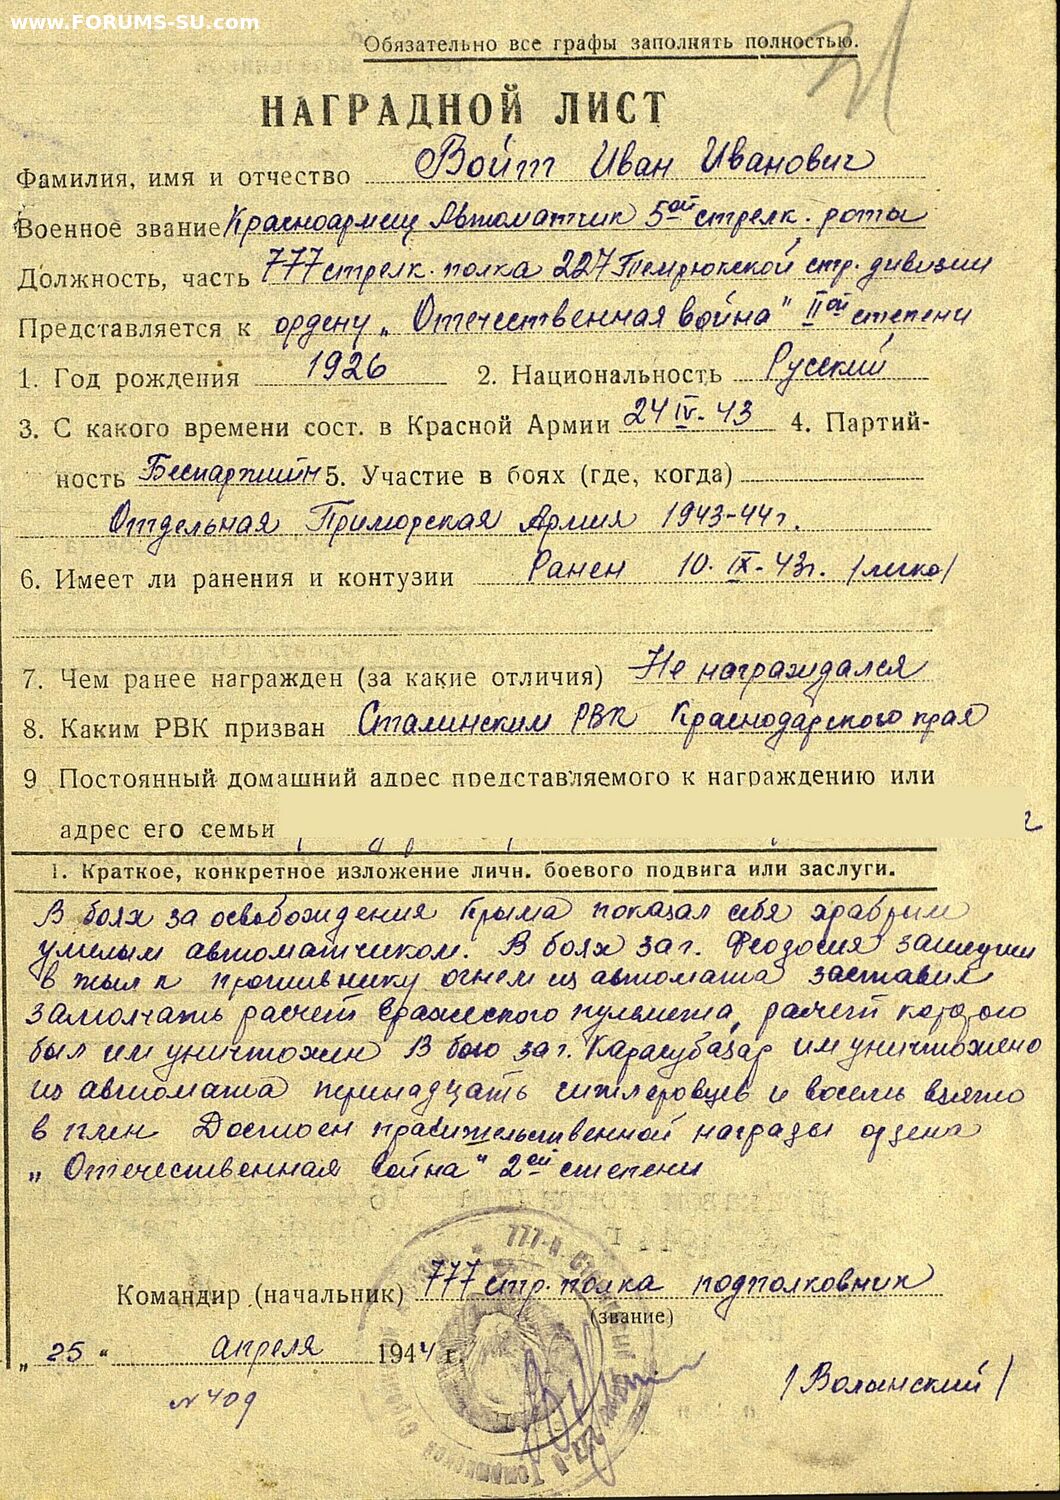 www.FORUMS-SU.com
Обязательно все графы заполнять полностью.
НАГРАДНОЙ ЛИСТ
Фамилия, имя и отчество Войт Иван Иванович
Военное звание Красноармеец Автоматчик 5ой стрелк. роты
Должность, часть 777 стрелк. полка 227 Темрюкской стр. дивизии
Представляется к ордену „Отечественная война" IIой степени
1. Год рождения 1926 2. Национальность Русский
3. С какого времени сост. в Красной Армии 24 IV-43 4. Партий-
ность Беспартийн 5. Участие в боях (где, когда)
Отдельная Приморская Армия 1943-44г.
6. Имеет ли ранения и контузии Ранен 10. IX-43г. /легко/
7. Чем ранее награжден (за какие отличия) Не награждался
8. Каким РВК призван Сталинским РВК Краснодарского края
9 Постоянный домашний адрес представляемого к награждению или
адрес его семьи
1. Краткое, конкретное изложение личн. боевого подвига или заслуги.
В боях за освобождения Крыма показал себя храбрым
умелым автоматчиком. В боях за г. Феодосия зашедши
в тыл к противнику огнем из автомата заставил
замолчать расчет вражеского пулемета, расчет которого
был им уничтожен В бою за г. Карасубазар им уничтожено
из автомата тринадцать гитлеровцев и восемь взято
в плен Достоен правительственной награды ордена
„Отечественная война" 2ей степени
Командир (начальник) 777 стр. полка подполковник
(звание)
„25" апреля 1944 г.
/Волынский/
№ 409